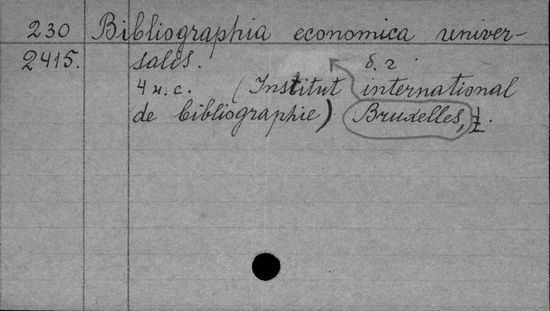 230 Bibliographia economica univer-
2415. sales. б. г.
4 н. с. (Institut international
de bibliographie) Bruxelles,